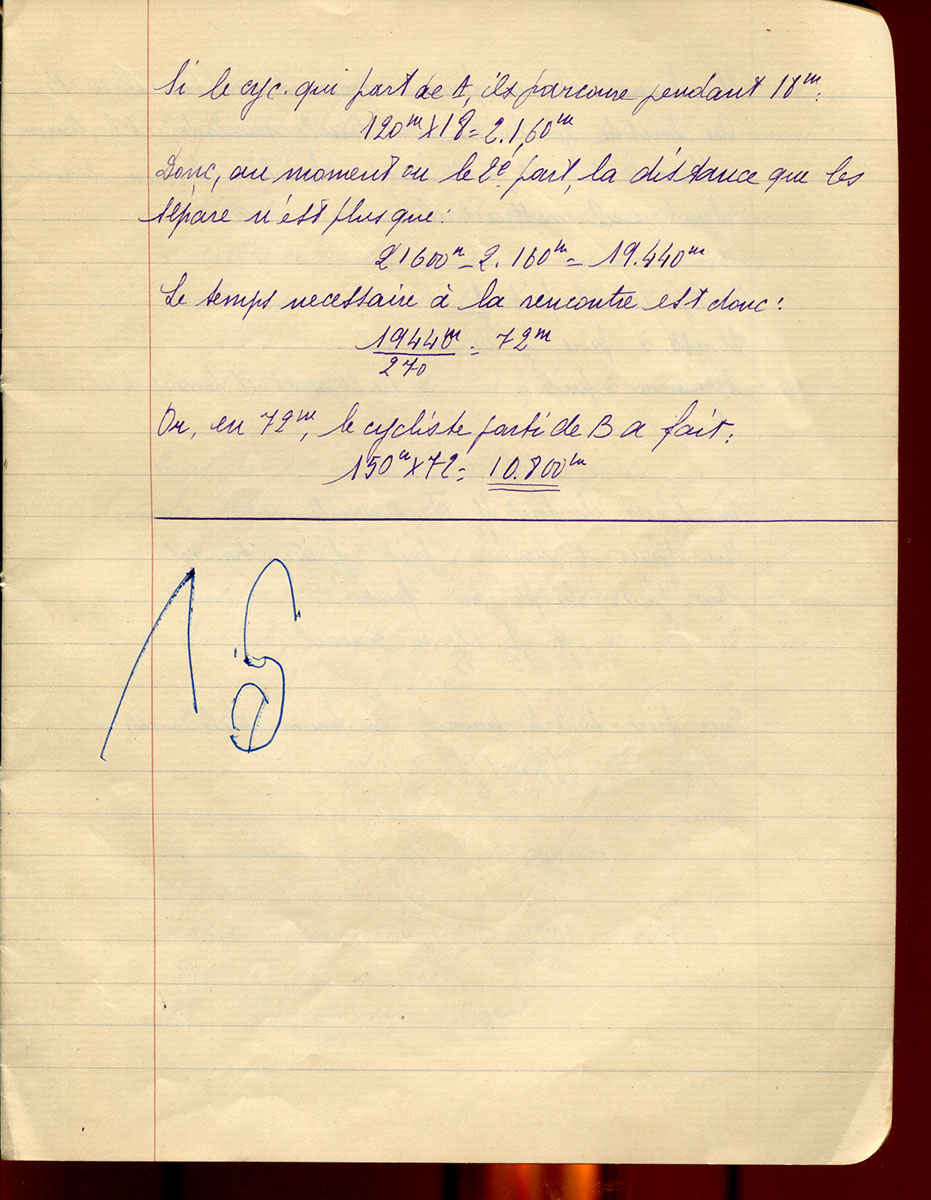 Si le cyc. qui part de A, il parcoure pendant 18ᵐ:
120ᵐ x 18 = 2.160ᵐ
Donc, au moment ou le 2é part, la distance que les
sépare n'est plus que:
21600ᵐ - 2.160ᵐ = 19.440ᵐ
Le temps necessaire à la rencontre est donc:
19440 / 270 = 72ᵐ
Or, en 72ᵐ, le cycliste parti de B a fait:
150ᵐ x 72 = 10.800ᵐ
15